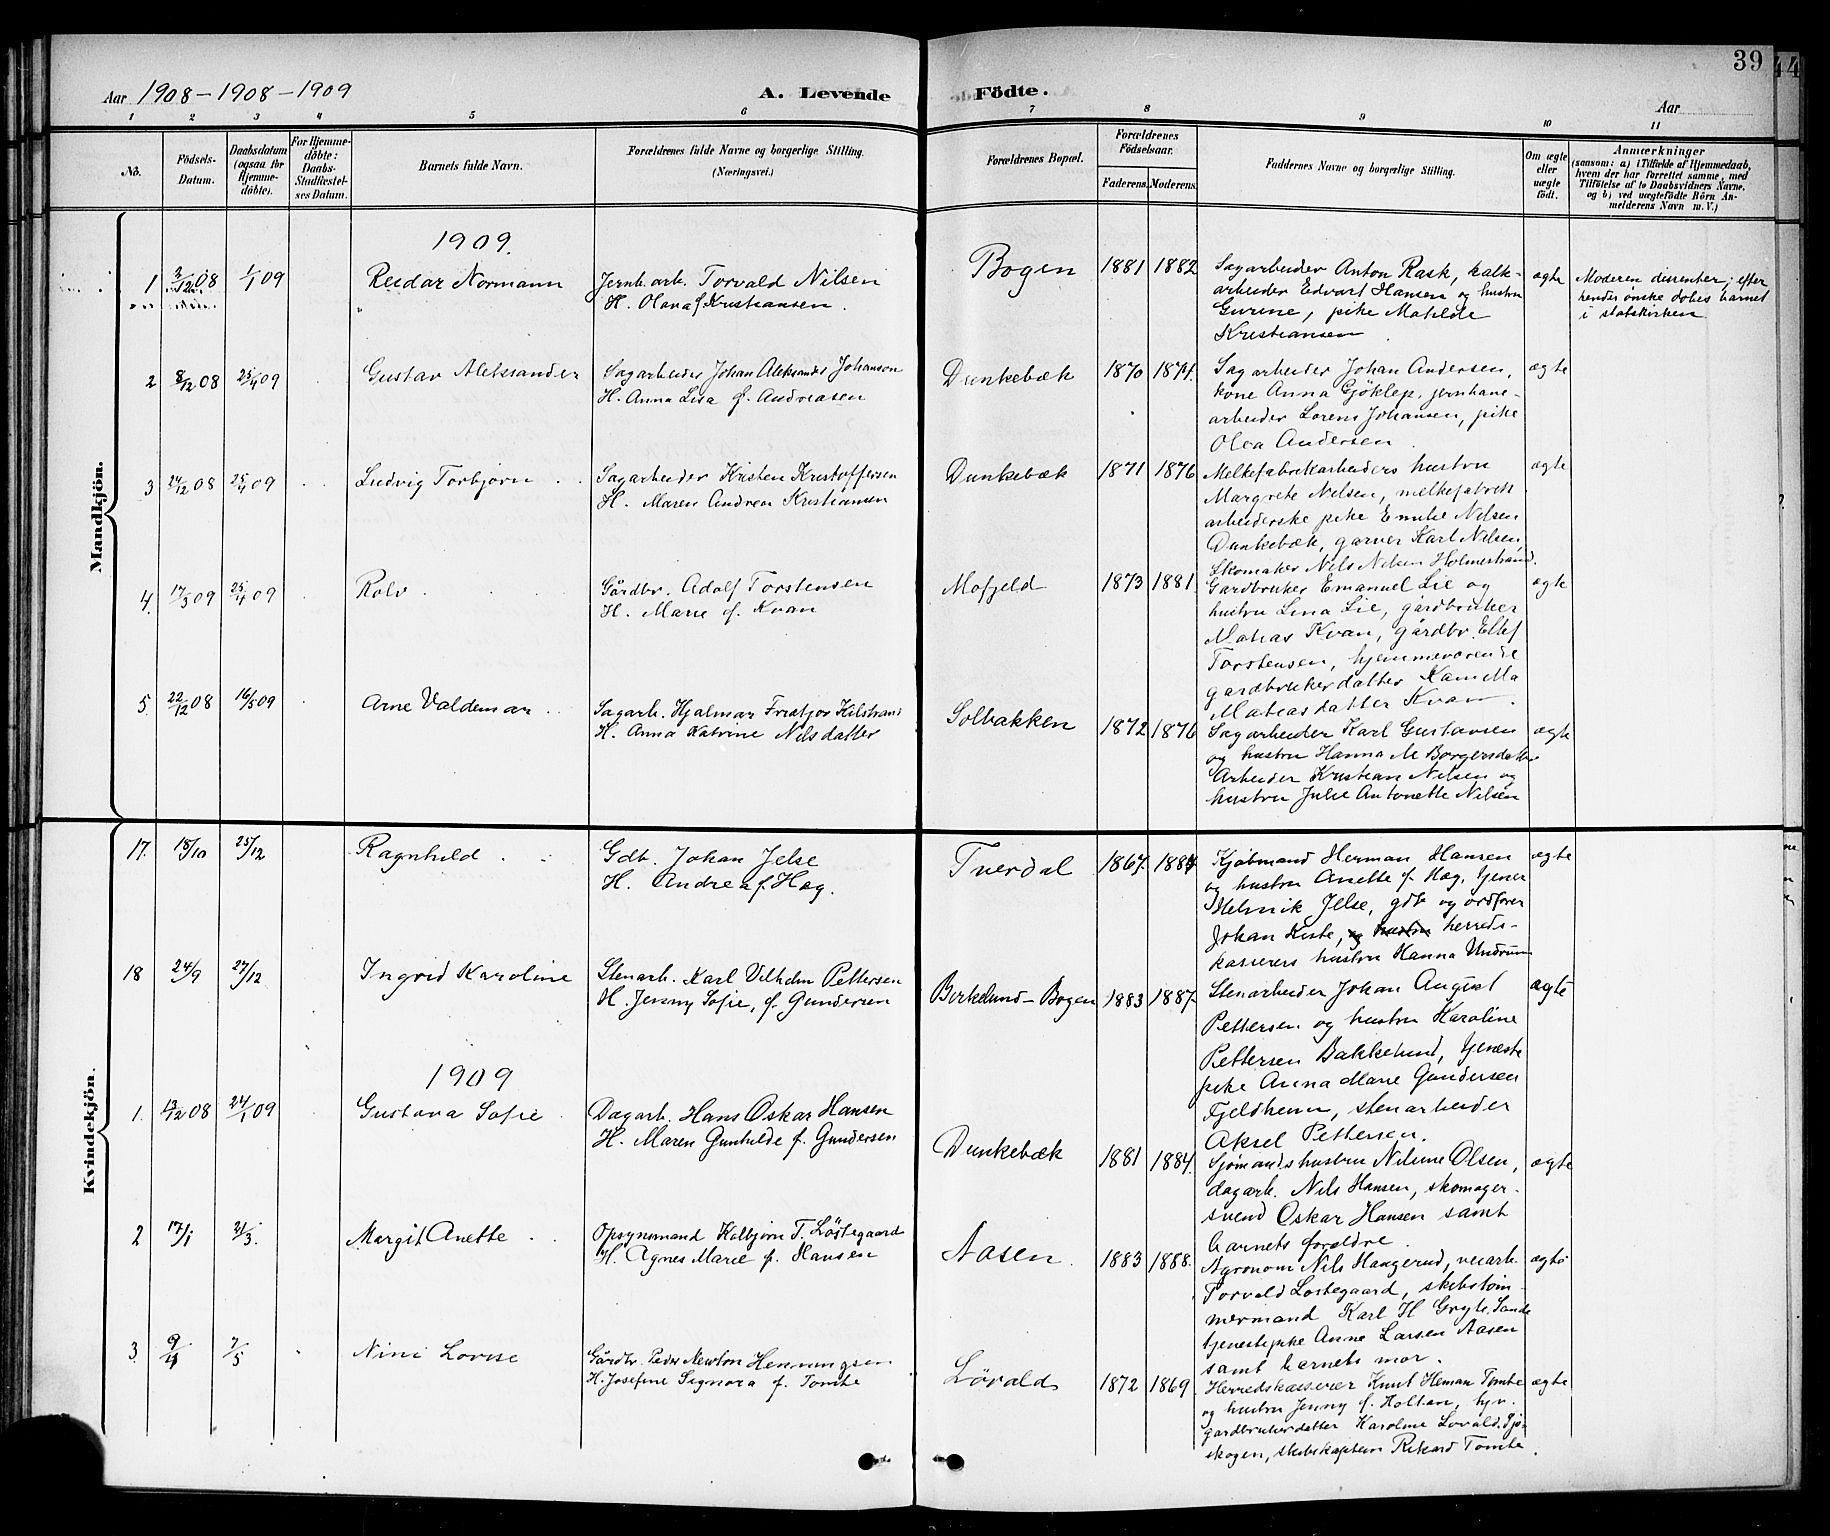 39
Aar 1908-1908-1909
A. Levende Födte.
Aar
1 2 3 4 5 6 7 8 9 10 11
No.
Födsels-
Datum.
Daabsdatum
(ogsaa for
Hjemme-
döbte).
For Hjemme-
döbte:
Daabs-
Stadfæstel-
ses Datum.
Barnets fulde Navn.
Forældrenes fulde Navne og borgerlige Stilling.
(Næringsvei.)
Forældrenes Bopæl.
Forældrenes
Födselsaar.
Faderens. Moderens.
Faddernes Navne og borgerlige Stilling.
Om ægte
eller
uægte
födt.
Anmærkninger
(saasom: a) i Tilfælde af Hjemmedaab,
hvem der har forrettet samme, med
Tilföielse af to Daabsvidners Navne,
og b) ved uægtefödte Börn An-
melderens Navn m. V.)
Mandkjön.
1909.
1 3/12 08 1/1 09 Reidar Normann
Jernb. arb. Torvald Nilsen
H. Olava f. Kristiansen.
Bogen 1881 1882
Sagarbeider Anton Rask, kalk-
arbeider Edvart Hansen og hustru
Gurine, pike Matilde
Kristiansen
ægte
Moderen dissenter; efter
hendes ønske døbes barnet
i statskirken
2 8/12 08 25/4 09 Gustav Aleksander
Sagarbeider Johan Aleksander Johanson
H. Anna Lisa f. Andreasen
Dunkebæk 1870 1874.
Sagarbeider Johan Andersen,
kone Anna Gjöklep, jernbane-
arbeider Lorens Johansen, pike
Olea Andersen
ægte
3 24/12 08 25/4 09 Ludvig Torbjørn
Sagarbeider Kristen Kristoffersen
H. Maren Andrea Kristiansen
Dunkebæk 1871 1876
Melkefabrikarbeiders hustru
Margrete Nilsen, melkefabrik
arbeiderske pike Emilie Nilsen
Dunkebæk, garver Karl Nilsen,
Skomaker Nils Nilsen Holmestrand.
ægte
4. 17/3 09 25/4 09 Rolv
Gårdbr. Adolf Torstensen
H. Marie f. Kvan
Mofjeld 1873 1881
Gardbruker Emanuel Lie og
hustru Lina Lie, gårdbruker
Matias Kvan, gårdbr. Ellef
Torstensen, hjemmeværende
gardbrukerdatter Kamilla
Matiasdatter Kvan.
ægte
5. 22/12 08 16/5 09 Arne Valdemar
Sagarb. Hjalmar Fridtjov Kilstrand
H. Anna Katrine Nilsdatter
Solbakken 1872 1876
Sagarbeider Karl Gustavsen
og hustru Hanna M Borgersdatter
Arbeider Kristian Nilsen og
hustru Julie Antonette Nilsen
ægte
Kvindekjön.
17. 18/10 25/12 Ragnhild
Gdb. Johan Jelse
H. Andrea f. Hæg.
Tverdal 1867. 1884
Kjöbmand Herman Hansen
og hustru Anette f. Hæg, tjener
Helmik Jelse, gdb og ordfører
Johan Kiste, og hustru herreds-
kasserers hustru Hanna Undrum
ægte
18 24/9 27/12 Ingrid Karoline
Stenarb. Karl Vilhelm Pettersen
H. Jenny Sofie, f. Gundersen
Birkelund-Bogen 1883 1887.
Stenarbeider Johan August
Pettersen og hustru Karoline
Pettersen Bakkelund, tjeneste
pike Anna Marie Gundersen
Fjeldheim, stenarbeider
Aksel Pettersen.
ægte
1909
1. 13/12 08 24/1 09 Gustava Sofie
Dagarb. Hans Oskar Hansen
H. Maren Gunhilde f. Gundersen
Dunkebæk 1881 1884.
Sjömandshustru Niline Olsen,
dagarb. Nils Hansen, skomager-
svend Oskar Hansen samt
barnets foreldre.
ægte
2 17/1 21/3. Margit Anette
Opsynsmand Kolbjørn T. Löstegaard
H. Agnes Marie f. Hansen
Aasen. 1883 1888.
Agronom Nils Haugerud, veiarb.
Torvald Löstegaard, skibstöm-
mermand Karl H Gryte, Sande
tjenestepike Anne Larsen Aasen
samt barnets mor.
ægte
3. 9/4 7/5 Nini Lovise
Gårdbr. Peder Newton Henningsen
H. Josefine Signora f. Tomte
Lövald 1872 1869
Herredskasserer Knut Heman Tomte
og hustru Jenny f. Holtan, hjv.
gardbrukerdatter Karoline Lovald, Gjö-
skogen, skibskaptein Rikard Tomte.
ægte